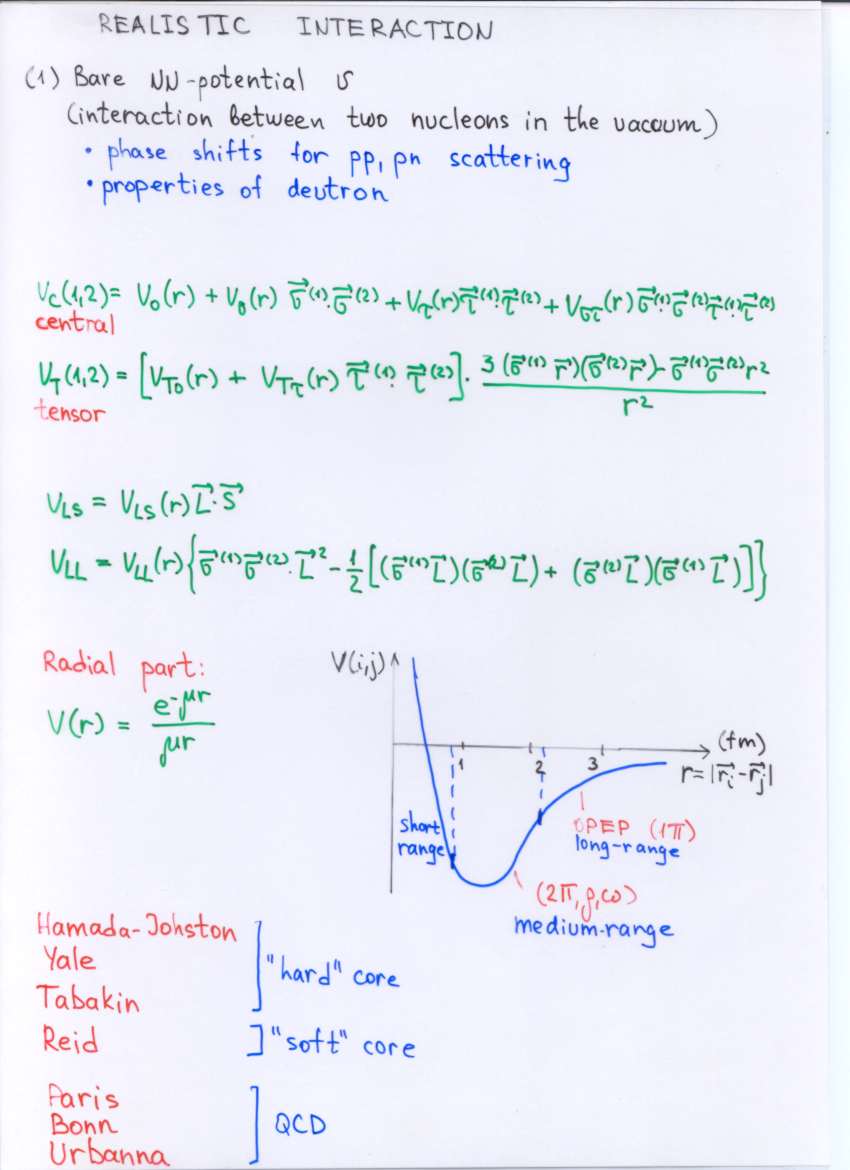 REALISTIC INTERACTION
(1) Bare NN-potential v
(interaction between two nucleons in the vacuum)
• phase shifts for pp, pn scattering
• properties of deutron
V_C(1,2) = V_0(r) + V_σ(r) σ⃗⁽¹⁾·σ⃗⁽²⁾ + V_τ(r) τ⃗⁽¹⁾·τ⃗⁽²⁾ + V_στ(r) σ⃗⁽¹⁾·σ⃗⁽²⁾ τ⃗⁽¹⁾·τ⃗⁽²⁾
central
V_T(1,2) = [V_T0(r) + V_Tτ(r) τ⃗⁽¹⁾·τ⃗⁽²⁾] · 3(σ⃗⁽¹⁾ r⃗)(σ⃗⁽²⁾ r⃗) - σ⃗⁽¹⁾σ⃗⁽²⁾ r² / r²
tensor
V_LS = V_LS(r) L⃗·S⃗
V_LL = V_LL(r) {σ⃗⁽¹⁾σ⃗⁽²⁾·L⃗² - 1/2 [(σ⃗⁽¹⁾L⃗)(σ⃗⁽²⁾L⃗) + (σ⃗⁽²⁾L⃗)(σ⃗⁽¹⁾L⃗)]}
Radial part:
V(r) = e^-μr / μr
V(i,j)
(fm)
1 2 3
r = |r⃗_i - r⃗_j|
short
range
OPEP (1π)
long-range
(2π, ρ, ω)
medium-range
Hamada-Johston
Yale
Tabakin
"hard" core
Reid
"soft" core
Paris
Bonn
Urbanna
QCD